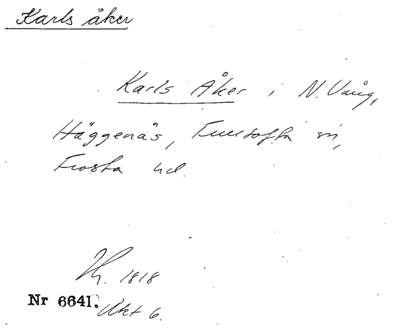 Karls åker
Karls Åker i N. Vång,
Häggenäs, Fulltofta sn,
Frosta hd.
Lh. 1818
Nr 6641. Akt 6.